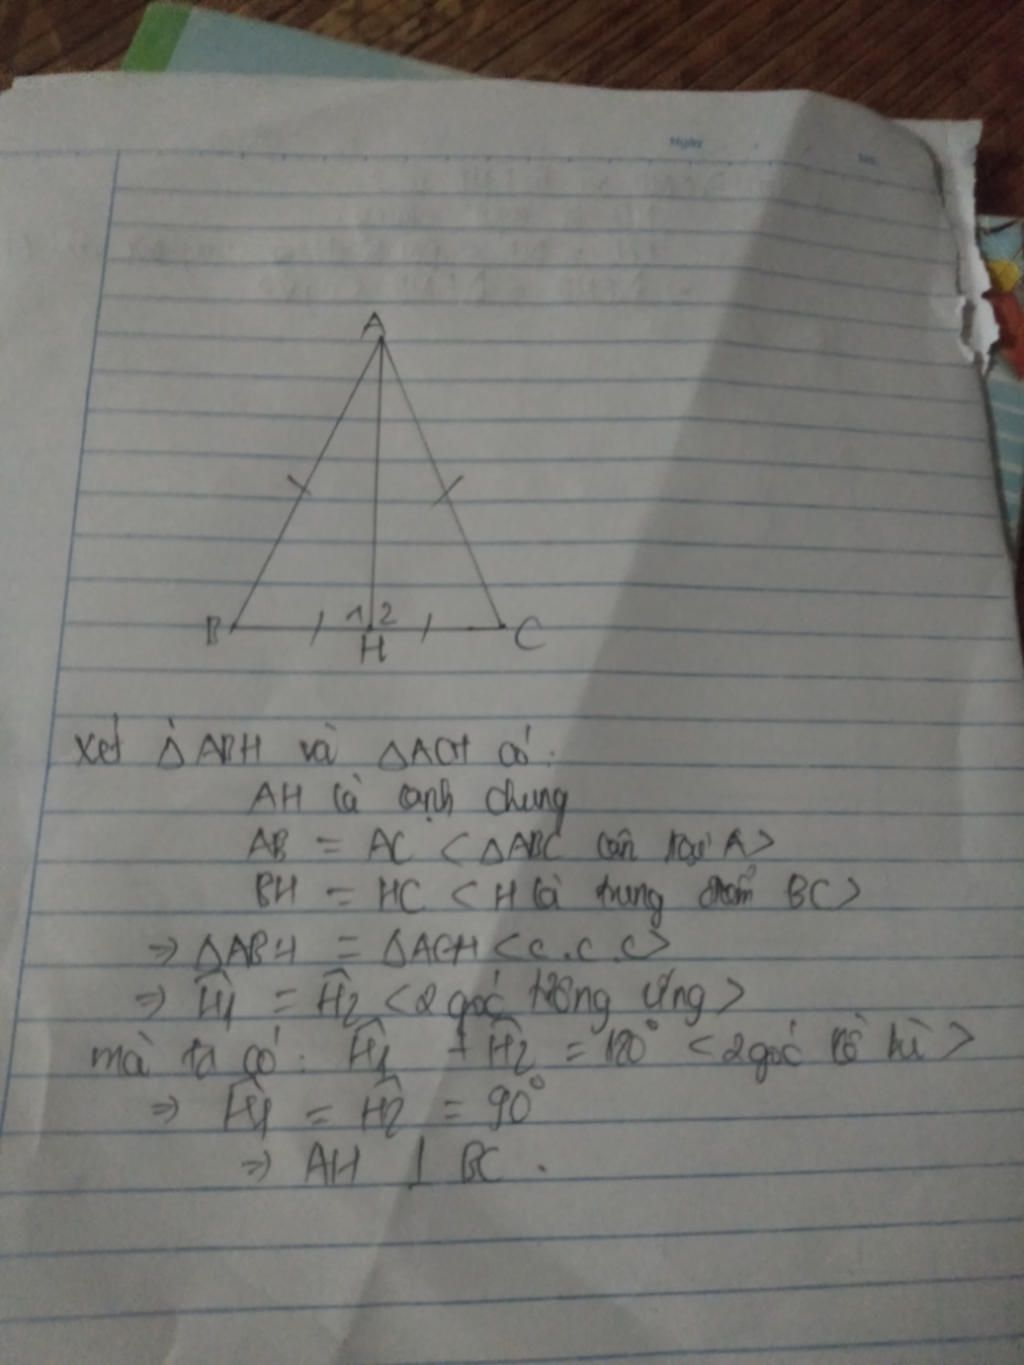 Ngày
No.
A
B
1 2
C
H
Xét △ABH và △ACH có:
AH là cạnh chung
AB = AC <△ABC cân tại A>
BH = HC <H là trung điểm BC>
⇒ △ABH = △ACH <c.c.c>
⇒ Ĥ1 = Ĥ2 <2 góc tương ứng>
mà ta có: Ĥ1 + Ĥ2 = 180° <2 góc kề bù>
⇒ Ĥ1 = Ĥ2 = 90°
⇒ AH ⊥ BC.